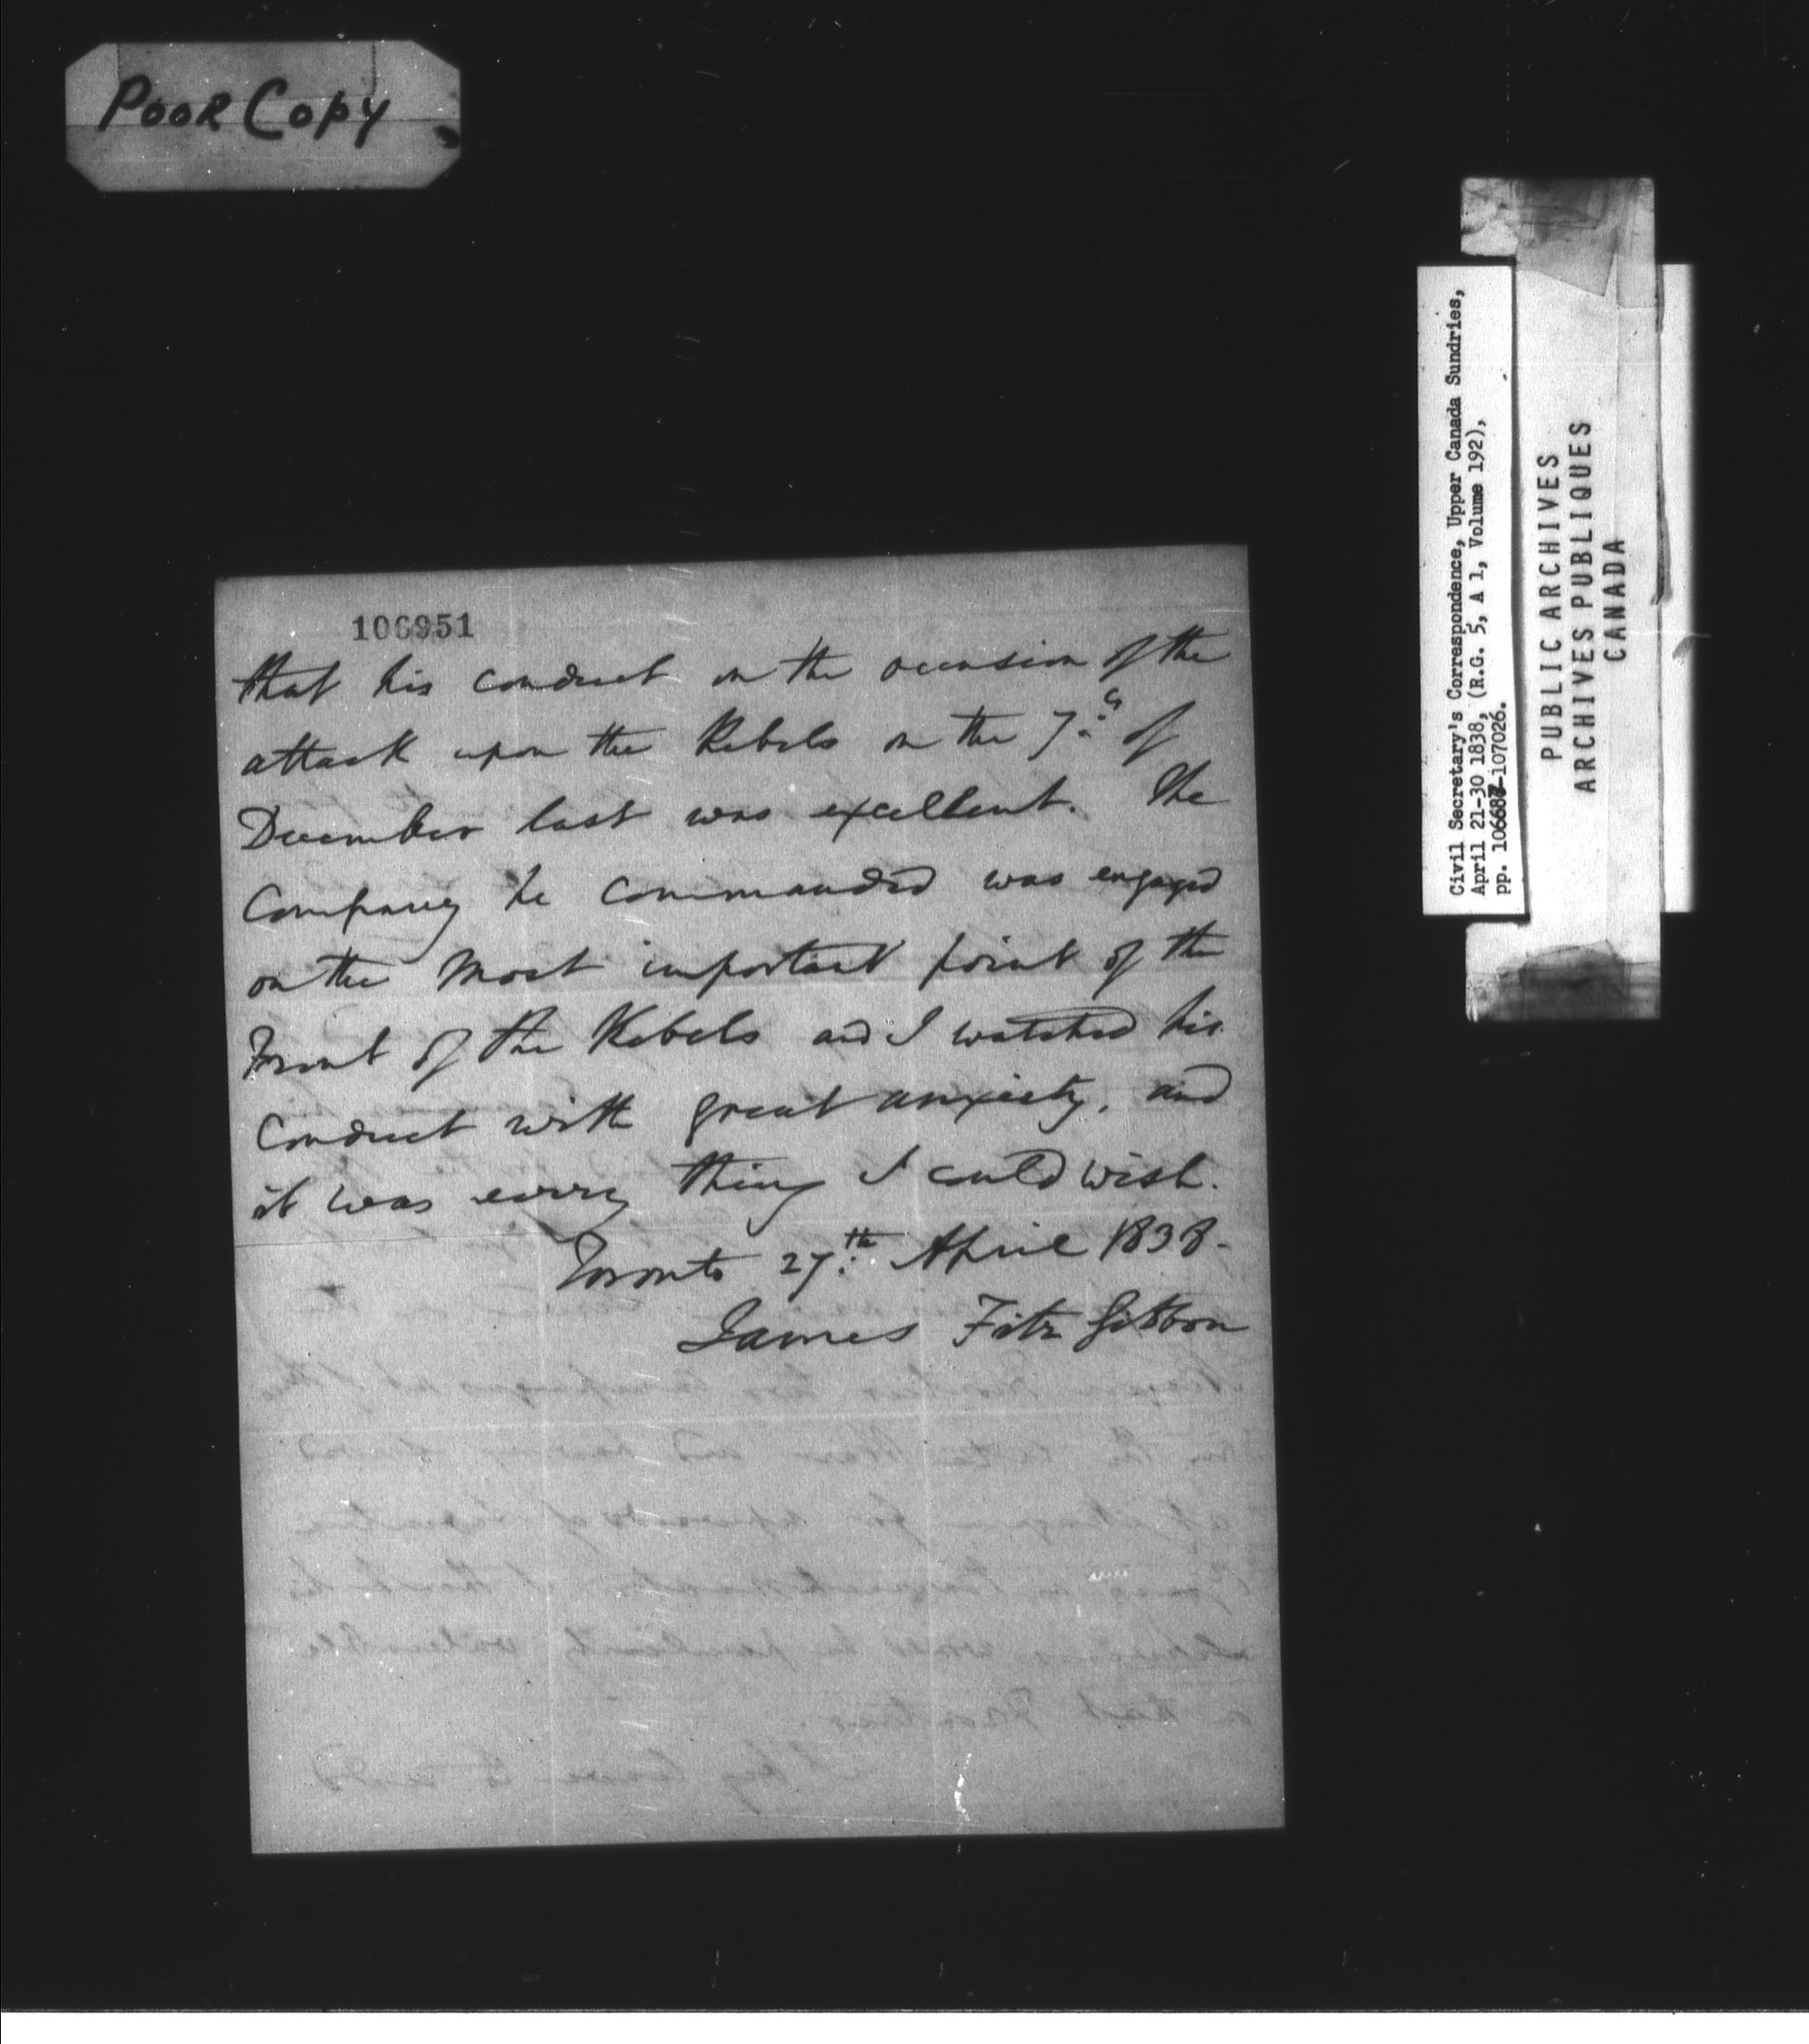 Poor Copy
106951
that his conduct on the occasion of the
attack upon the Rebels on the 7th of
December last was excellent. The
Company he commanded was engaged
on the most important point of the
Front of the Rebels and I watched his
Conduct with great anxiety, and
it was every thing I could wish.
Toronto 27th April 1838.
James FitzGibbon
Civil Secretary's Correspondence, Upper Canada Sundries,
April 21-30 1838, (R.G. 5, A 1, Volume 192),
pp. 106687-107026.
PUBLIC ARCHIVES
ARCHIVES PUBLIQUES
CANADA